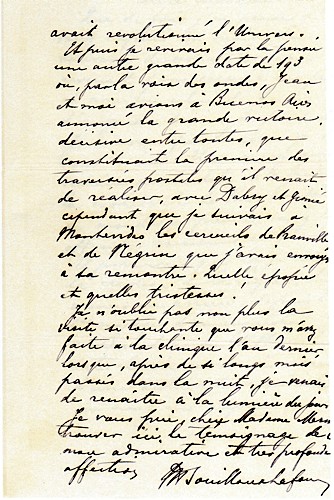 avait revolutionné l'Univers.
Et puis je revivais par la pensée
une autre grande date de 193
où, par la voix des ondes, Jean
et moi avions à Buenos Aires
annoncé la grande victoire
décisive entre toutes, que
constituait la première des
traversées postales qu'il venait
de réaliser, avec Dabry et Gimié
cependant que je suivais à
Montevideo les cercueils de
et de Négrin que j'avais envoyés
à sa rencontre. Quelle épopée
et quelles tristesses!
Je n'oublie pas non plus la
visite si touchante que vous m'avez
faite à la clinique l'an dernier
lorsque, après de si longs mois
passés dans la nuit, je venais
de renaître à la lumière du jour
Je vous prie, chère Madame Mermoz
trouver ici le témoignage de
mon admirative et très profonde
affection